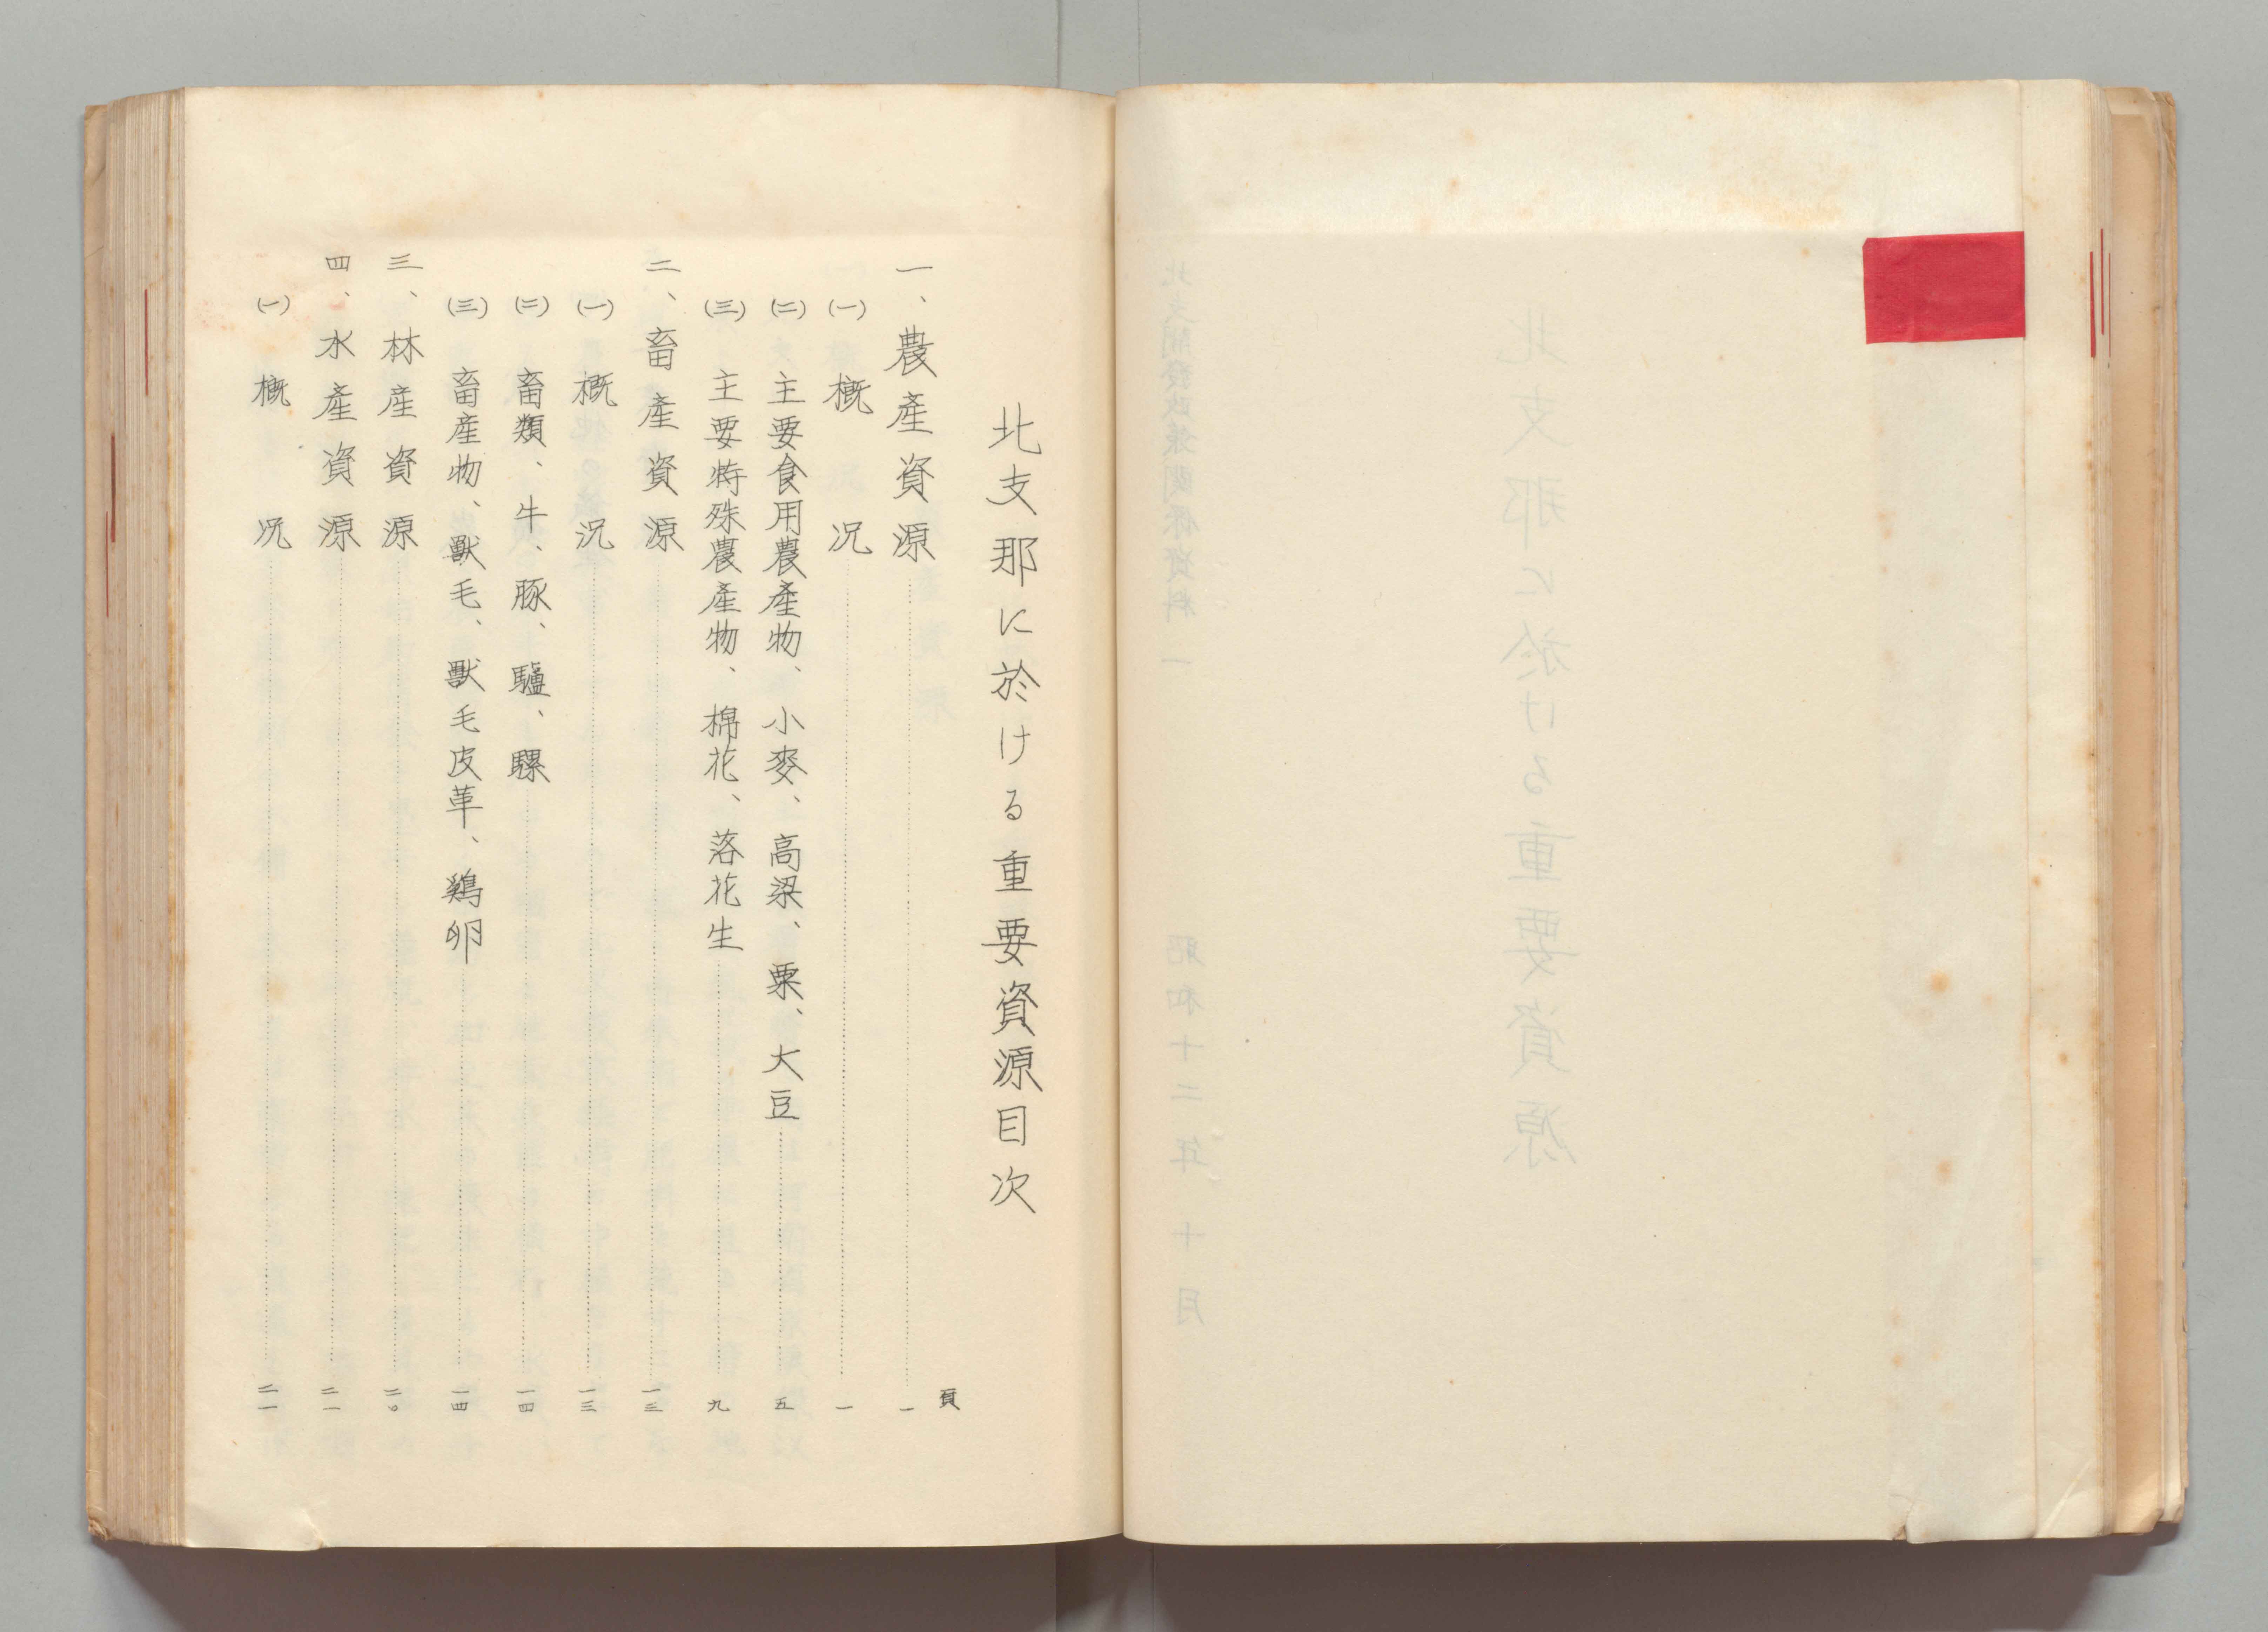 北支那に於ける重要資源目次
頁
一、農產資源 一
(一) 槪況 一
(二) 主要食用農產物、小麥、高梁、粟、大豆 五
(三) 主要特殊農產物、棉花、落花生 九
二、畜產資源 一三
(一) 槪況 一三
(二) 畜類、牛、豚、驢、騾 一四
(三) 畜產物、獸毛、獸毛皮革、鷄卵 一四
三、林產資源 二〇
四、水產資源 二一
(一) 槪況 二一